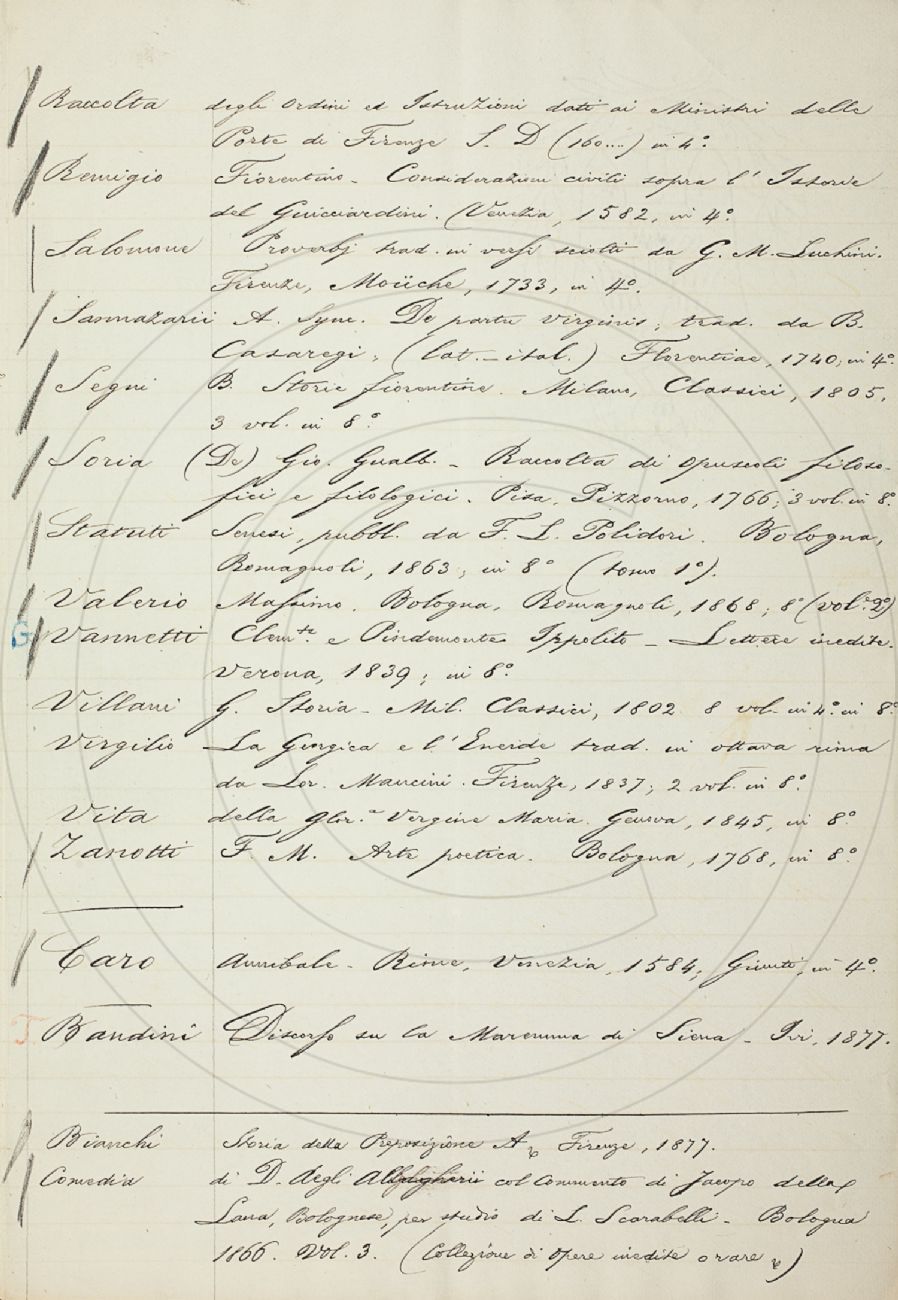 Raccolta degli Ordini ed Istruzioni dati ai Ministri delle
Porte di Firenze S. D (160....) in 4°.
Remigio Fiorentino - Considerazioni civili sopra l'Istorie
del Guicciardini. (Venezia, 1582, in 4°.
Salomone Proverbj trad. in versi sciolti da G. M. Luchini.
Firenze, Moüche, 1733, in 4°.
Sannazarii A. Sync. De partu virginis, trad. da B.
Casaregi, (lat.-ital.) Florentiae, 1740, in 4°.
Segni B. Storie fiorentine. Milano, Classici, 1805,
3 vol. in 8°.
Soria (De) Gio. Gualb. - Raccolta di opuscoli filoso-
fici e filologici. Pisa, Pizzorno, 1766; 3 vol. in 8°.
Statuti Senesi, pubbl. da F. L. Polidori. Bologna,
Romagnoli, 1863, in 8° (tomo 1°).
Valerio Massimo. Bologna, Romagnoli, 1868, 8° (vol.e 2°)
G Vannetti Clem.te e Pindemonte Ippolito - Lettere inedite.
Verona, 1839; in 8°.
Villani G. Storia - Mil. Classici, 1802 8 vol. in 4°. in 8°
Virgilio La Giorgica e l'Eneide trad. in ottava rima
da Lor. Mancini. Firenze, 1837; 2 vol. in 8°.
Vita della Glor.a Vergine Maria. Genova, 1845, in 8°.
Zanotti F. M. Arte poetica. Bologna, 1768, in 8°.
Caro Annibale - Rime, Venezia, 1584, Giunti, in 4°.
T Bandini Discorso su la Maremma di Siena - Ivi, 1877.
Bianchi Storia della Preposizione A Firenze, 1877.
Comedia di D. degli Allighierii col Commento di Jacopo della
Lana, Bolognese, per studio di L. Scarabelli - Bologna
1866. Vol. 3. (Collezione di Opere inedite o rare)